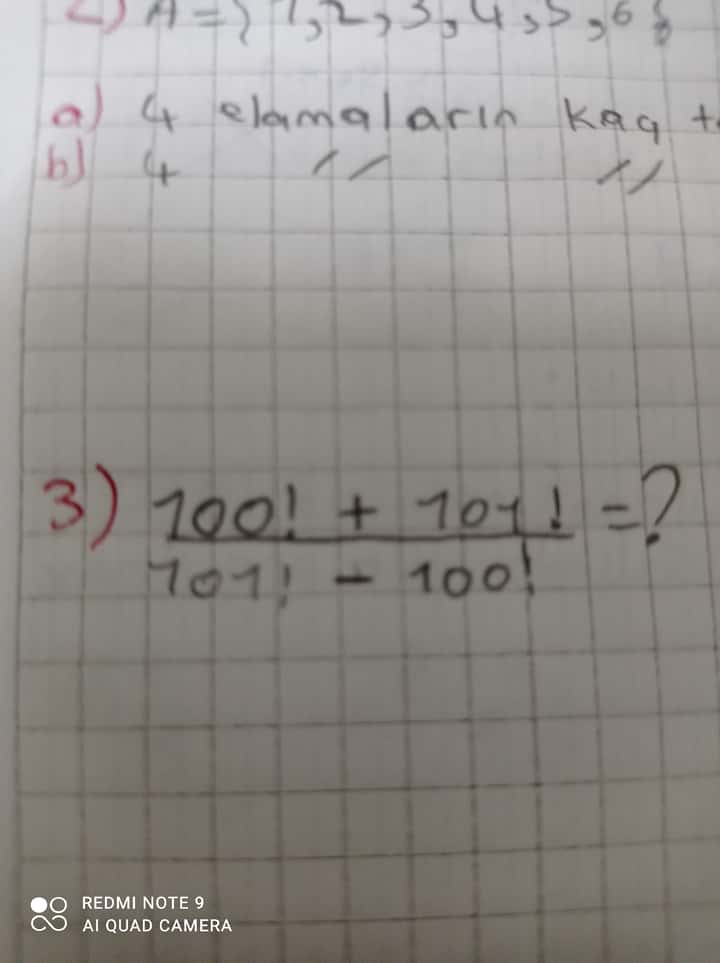 2) A = { 1, 2, 3, 4, 5, 6 }
a) 4 elamaların kaç
b) 4 // //
3) 100! + 101! = ?
101! - 100!
REDMI NOTE 9
AI QUAD CAMERA